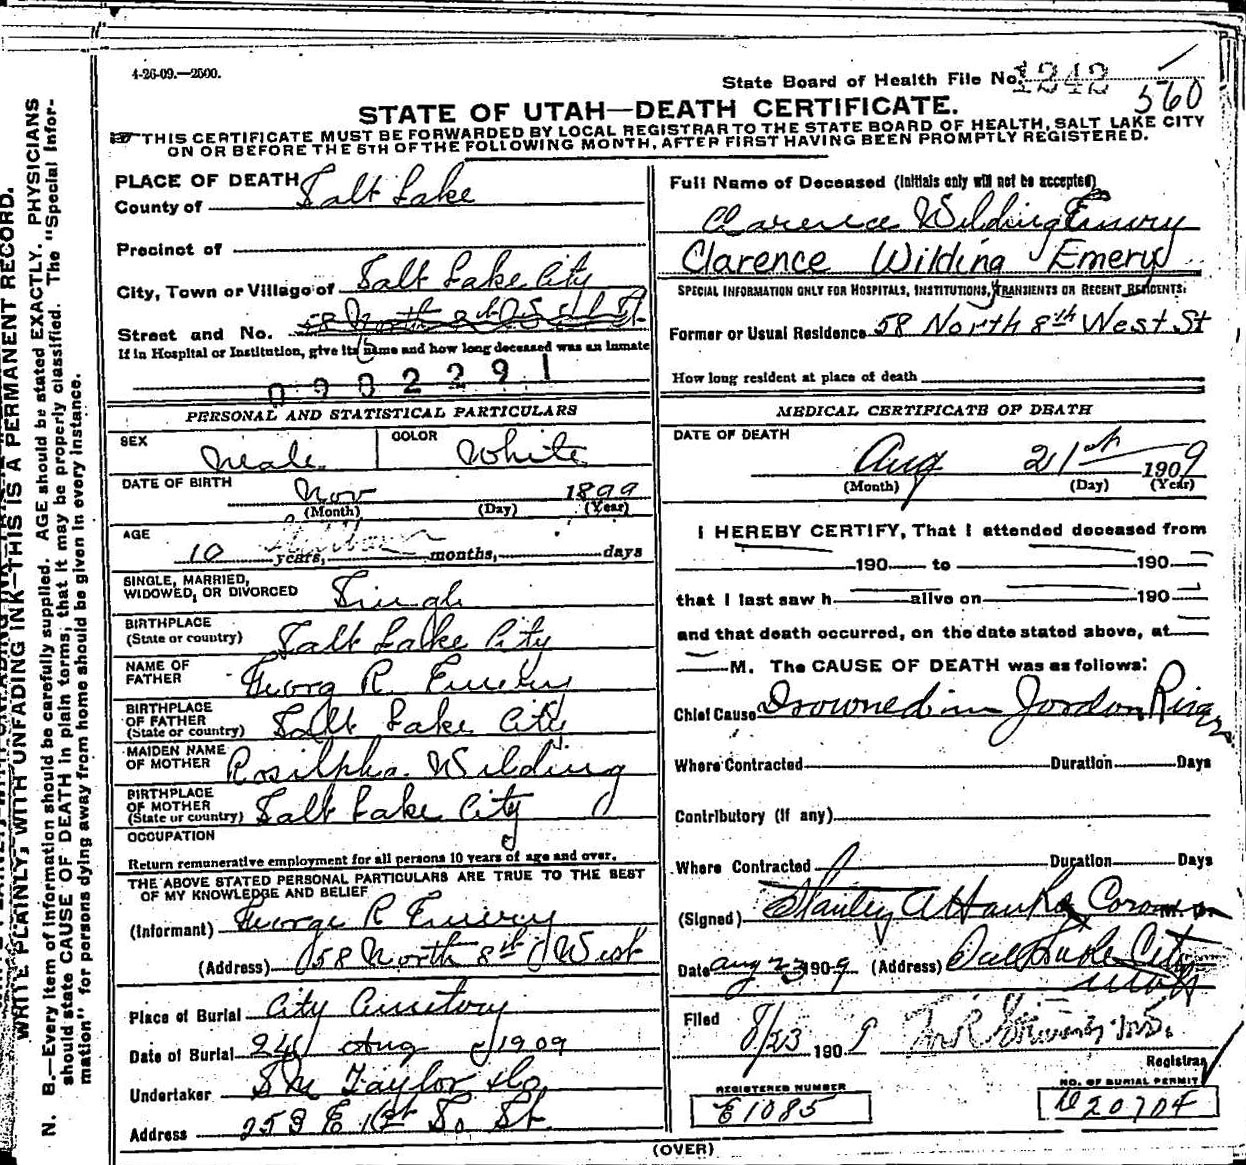 4-26-09.—2500.
State Board of Health File No. 1242
560
STATE OF UTAH—DEATH CERTIFICATE.
THIS CERTIFICATE MUST BE FORWARDED BY LOCAL REGISTRAR TO THE STATE BOARD OF HEALTH, SALT LAKE CITY
ON OR BEFORE THE 5TH OF THE FOLLOWING MONTH, AFTER FIRST HAVING BEEN PROMPTLY REGISTERED.
WRITE PLAINLY, WITH UNFADING INK—THIS IS A PERMANENT RECORD.
N. B.—Every item of information should be carefully supplied. AGE should be stated EXACTLY. PHYSICIANS
should state CAUSE OF DEATH in plain terms, that it may be properly classified. The "Special Infor-
mation" for persons dying away from home should be given in every instance.
PLACE OF DEATH
County of Salt Lake
Precinct of
City, Town or Village of Salt Lake City
Street and No. 58 North 8th
If in Hospital or Institution, give its name and how long deceased was an inmate
0902291
PERSONAL AND STATISTICAL PARTICULARS
SEX Male COLOR White
DATE OF BIRTH Nov 1899
(Month) (Day) (Year)
AGE
10 years, months, days
SINGLE, MARRIED,
WIDOWED, OR DIVORCED Single
BIRTHPLACE
(State or country) Salt Lake City
NAME OF
FATHER Georg R. Emery
BIRTHPLACE
OF FATHER
(State or country) Salt Lake City
MAIDEN NAME
OF MOTHER Rosilpha Wilding
BIRTHPLACE
OF MOTHER
(State or country) Salt Lake City
OCCUPATION
Return remunerative employment for all persons 10 years of age and over.
THE ABOVE STATED PERSONAL PARTICULARS ARE TRUE TO THE BEST
OF MY KNOWLEDGE AND BELIEF
(Informant) George R Emery
(Address) 58 North 8th West
Place of Burial City Cemetery
Date of Burial 24 Aug 1909
Undertaker Taylor Co
Address 253 E 1st So St.
Full Name of Deceased (Initials only will not be accepted)
Clarence Wilding Emery
Clarence Wilding Emery
SPECIAL INFORMATION ONLY FOR HOSPITALS, INSTITUTIONS, TRANSIENTS OR RECENT RESIDENTS.
Former or Usual Residence 58 North 8th West St
How long resident at place of death
MEDICAL CERTIFICATE OF DEATH
DATE OF DEATH
Aug 21st 1909
(Month) (Day) (Year)
I HEREBY CERTIFY, That I attended deceased from
190 to 190
that I last saw h alive on 190
and that death occurred, on the date stated above, at
M. The CAUSE OF DEATH was as follows:
Chief Cause Drowned in Jordon River
Where Contracted Duration Days
Contributory (if any)
Where Contracted Duration Days
(Signed) Stanley A Hanks Coroner M. D.
Date Aug 23 1909 (Address) Salt Lake City
Utah
Filed
8/23 1909
Registrar
REGISTERED NUMBER
E1085
NO. OF BURIAL PERMIT
D20704
(OVER)